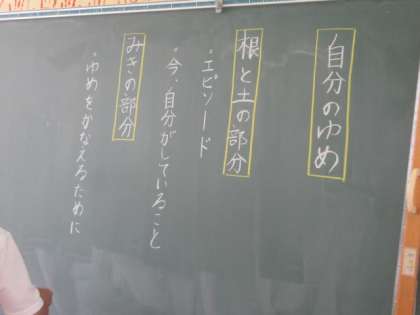 自分のゆめ
根と土の部分
・エピソード
・今、自分がしていること
みきの部分
・ゆめをかなえるために